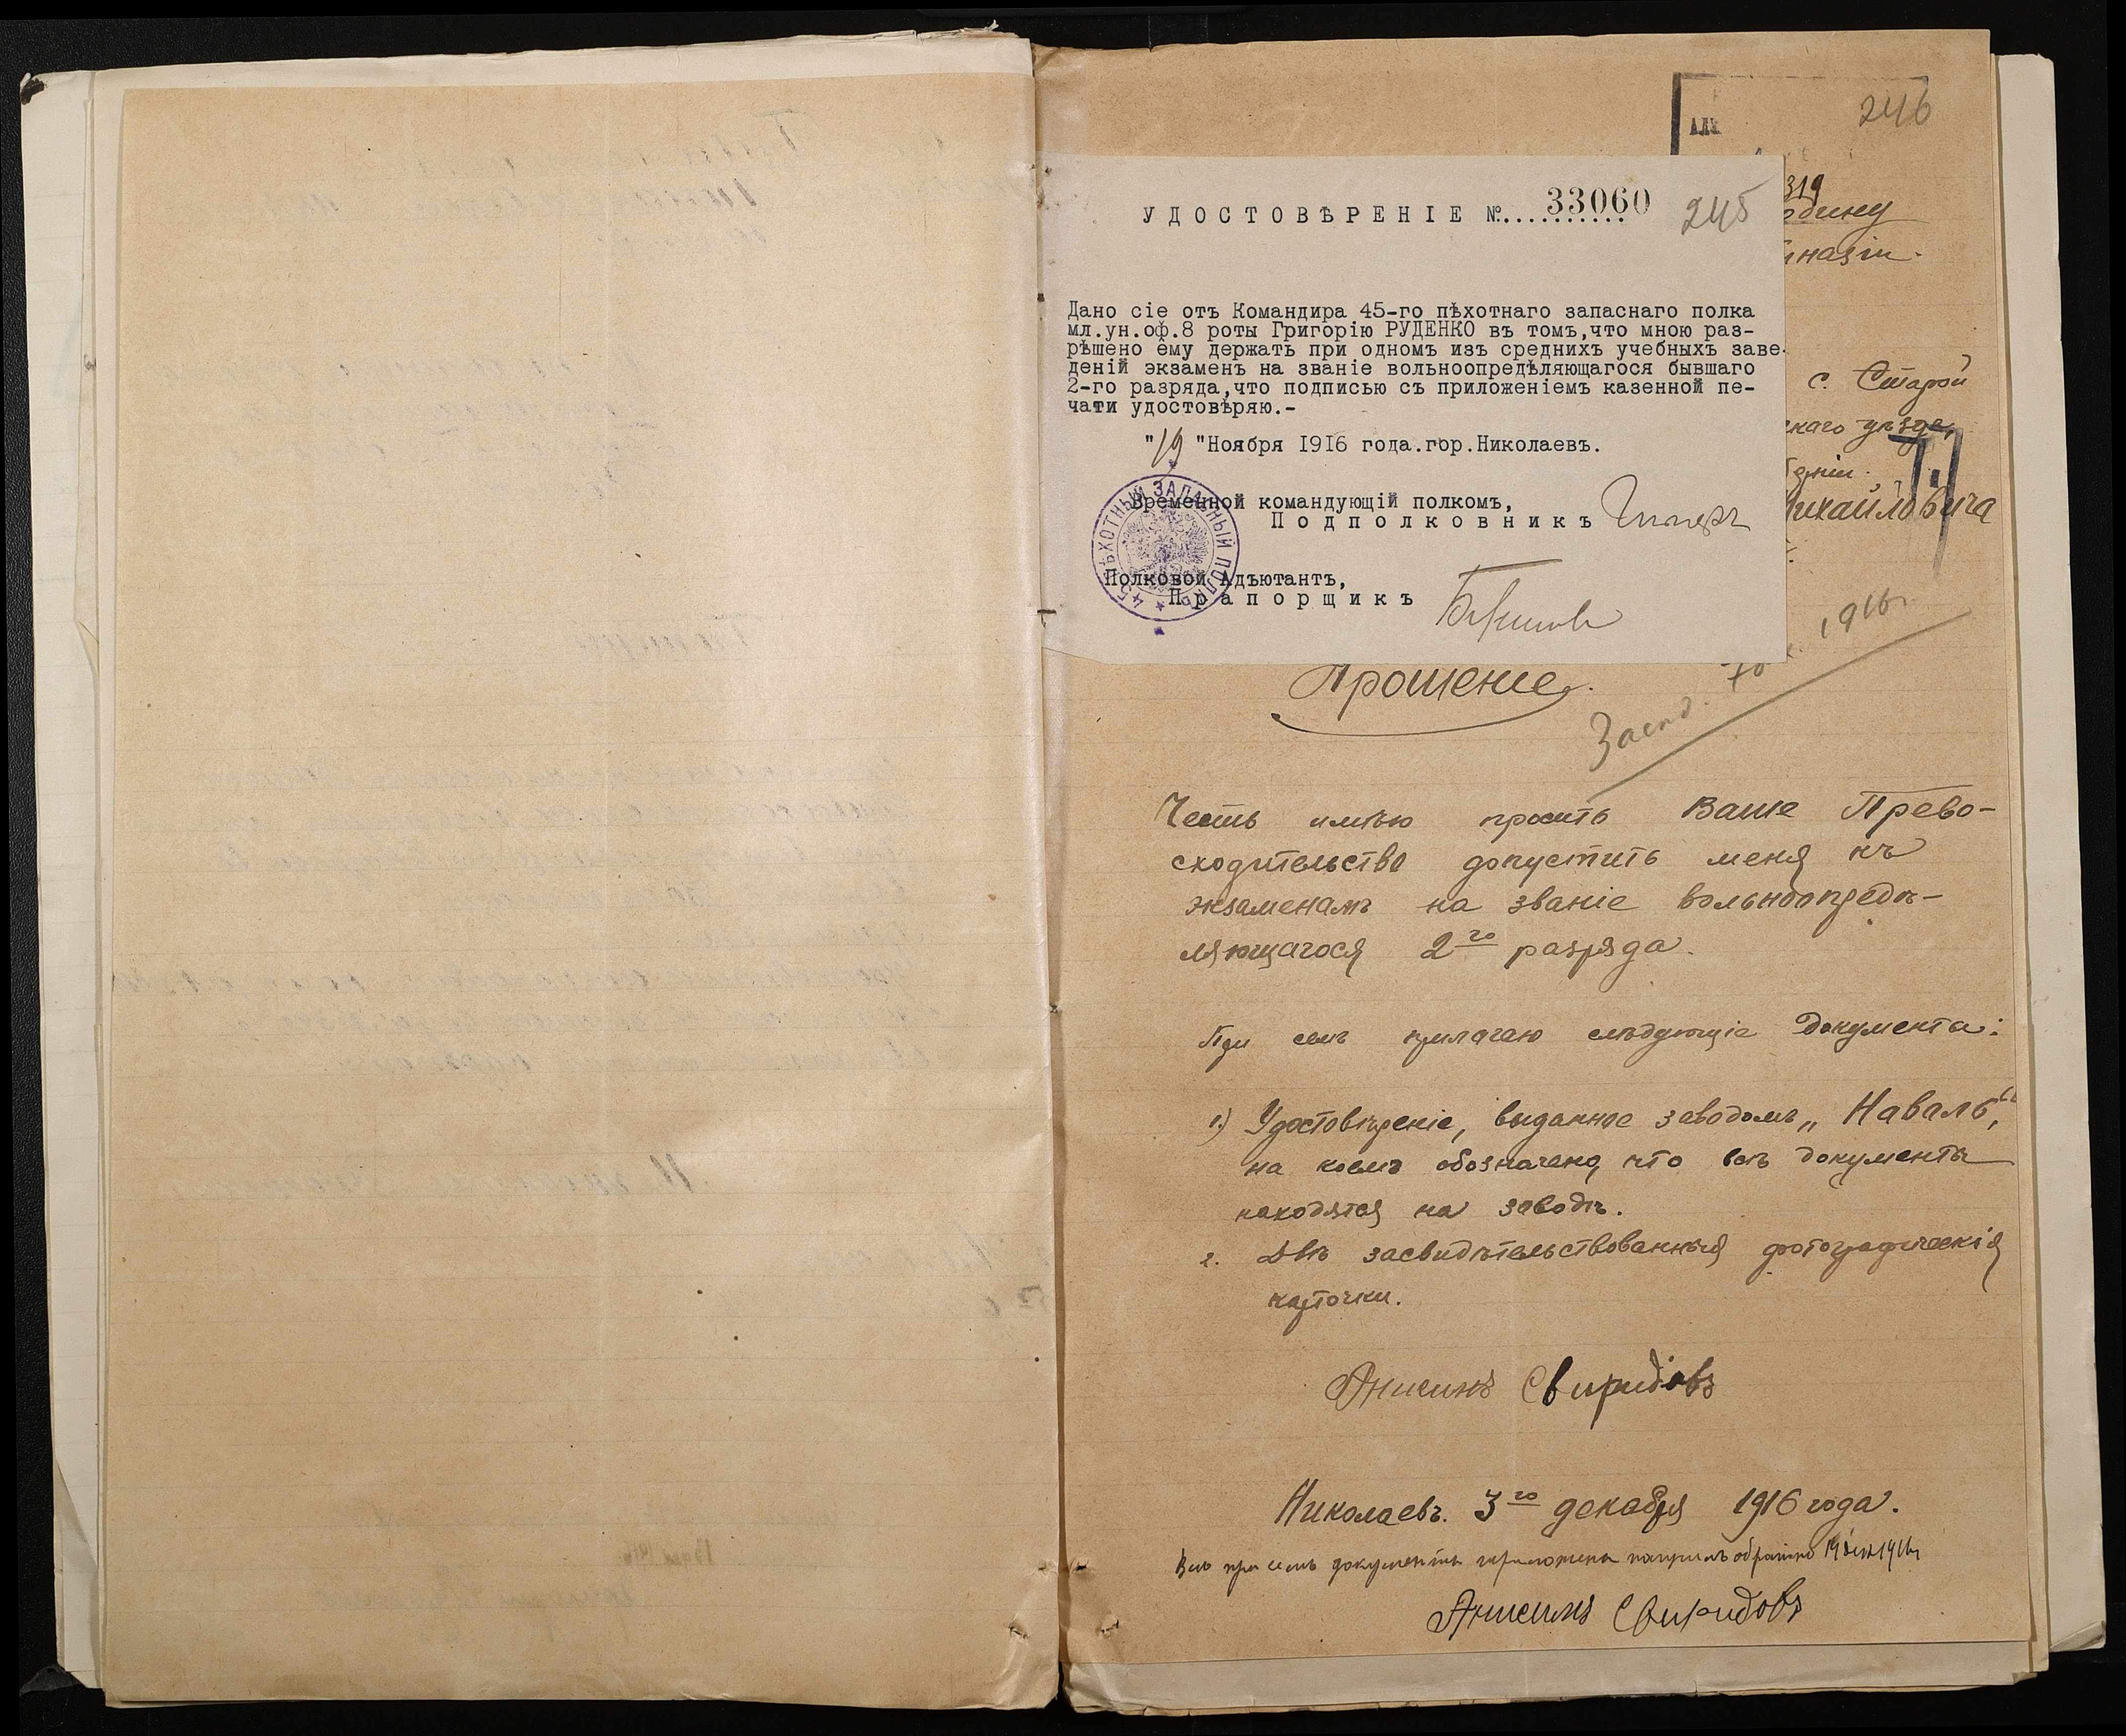 246
245
УДОСТОВѢРЕНІЕ №. 33060
319
Дано сіе отъ Командира 45-го пѣхотнаго запаснаго полка
мл.ун.оф.8 роты Григорію РУДЕНКО въ томъ,что мною раз-
рѣшено ему держать при одномъ изъ среднихъ учебныхъ заве-
деній экзаменъ на званіе вольноопредѣляющагося бывшаго
2-го разряда,что подписью съ приложеніемъ казенной пе-
чати удостовѣряю.-
"19"Ноября 1916 года.гор.Николаевъ.
Временной командующій полкомъ,
Подполковникъ
Полковой Адъютантъ,
Прапорщикъ
45 ПѢХОТНЫЙ ЗАПАСНЫЙ ПОЛКЪ
с. Старой
скаго уѣзда,
Михайловича
1916г.
Прошеніе.
Честь имѣю просить Ваше Прево-
сходительство допустить меня къ
экзаменамъ на званіе вольноопредѣ-
ляющагося 2го разряда.
При семъ прилагаю слѣдующіе документы:
1) Удостовѣреніе, выданное заводомъ „Наваль",
на коемъ обозначено, что всѣ документы
находятся на заводѣ.
2. Двѣ засвидѣтельствованныя фотографическія
карточки.
Анисимъ Свиридовъ
Николаевъ. 3го декабря 1916 года.
Всѣ при семъ документы приложены получилъ обратно 19 дек 1916г
Анисимъ Свиридовъ